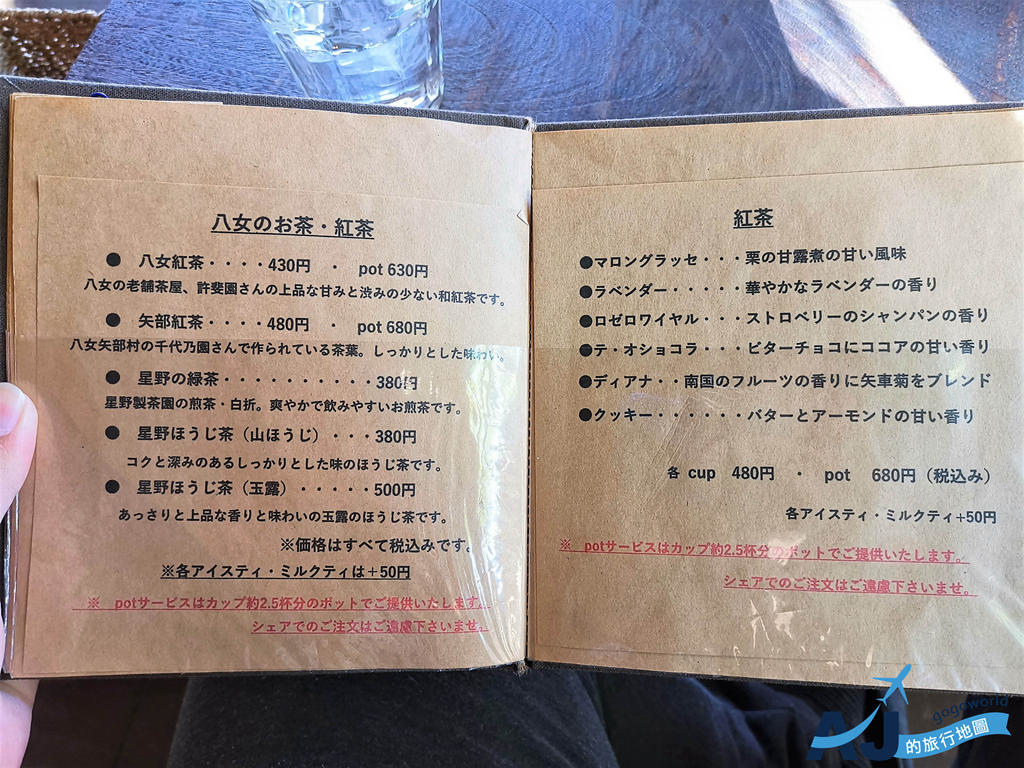 八女のお茶・紅茶
● 八女紅茶・・・・430円 ・ pot 630円
八女の老舗茶屋、許斐園さんの上品な甘みと渋みの少ない和紅茶です。
● 矢部紅茶・・・・480円 ・ pot 680円
八女矢部村の千代乃園さんで作られている茶葉。しっかりとした味わい。
● 星野の緑茶・・・・・・・・・・380円
星野製茶園の煎茶・白折。爽やかで飲みやすいお煎茶です。
● 星野ほうじ茶（山ほうじ）・・・380円
コクと深みのあるしっかりとした味のほうじ茶です。
● 星野ほうじ茶（玉露）・・・・・500円
あっさりと上品な香りと味わいの玉露のほうじ茶です。
※価格はすべて税込みです。
※各アイスティ・ミルクティは＋50円
※ potサービスはカップ約2.5杯分のポットでご提供いたします。
シェアでのご注文はご遠慮下さいませ。
紅茶
●マロングラッセ・・・栗の甘露煮の甘い風味
●ラベンダー・・・・・華やかなラベンダーの香り
●ロゼロワイヤル・・・ストロベリーのシャンパンの香り
●テ・オショコラ・・・ビターチョコにココアの甘い香り
●ディアナ・・南国のフルーツの香りに矢車菊をブレンド
●クッキー・・・・・・バターとアーモンドの甘い香り
各 cup 480円 ・ pot 680円（税込み）
各アイスティ・ミルクティ+50円
※ potサービスはカップ約2.5杯分のポットでご提供いたします。
シェアでのご注文はご遠慮下さいませ。
gogoworld
AJ的旅行地圖